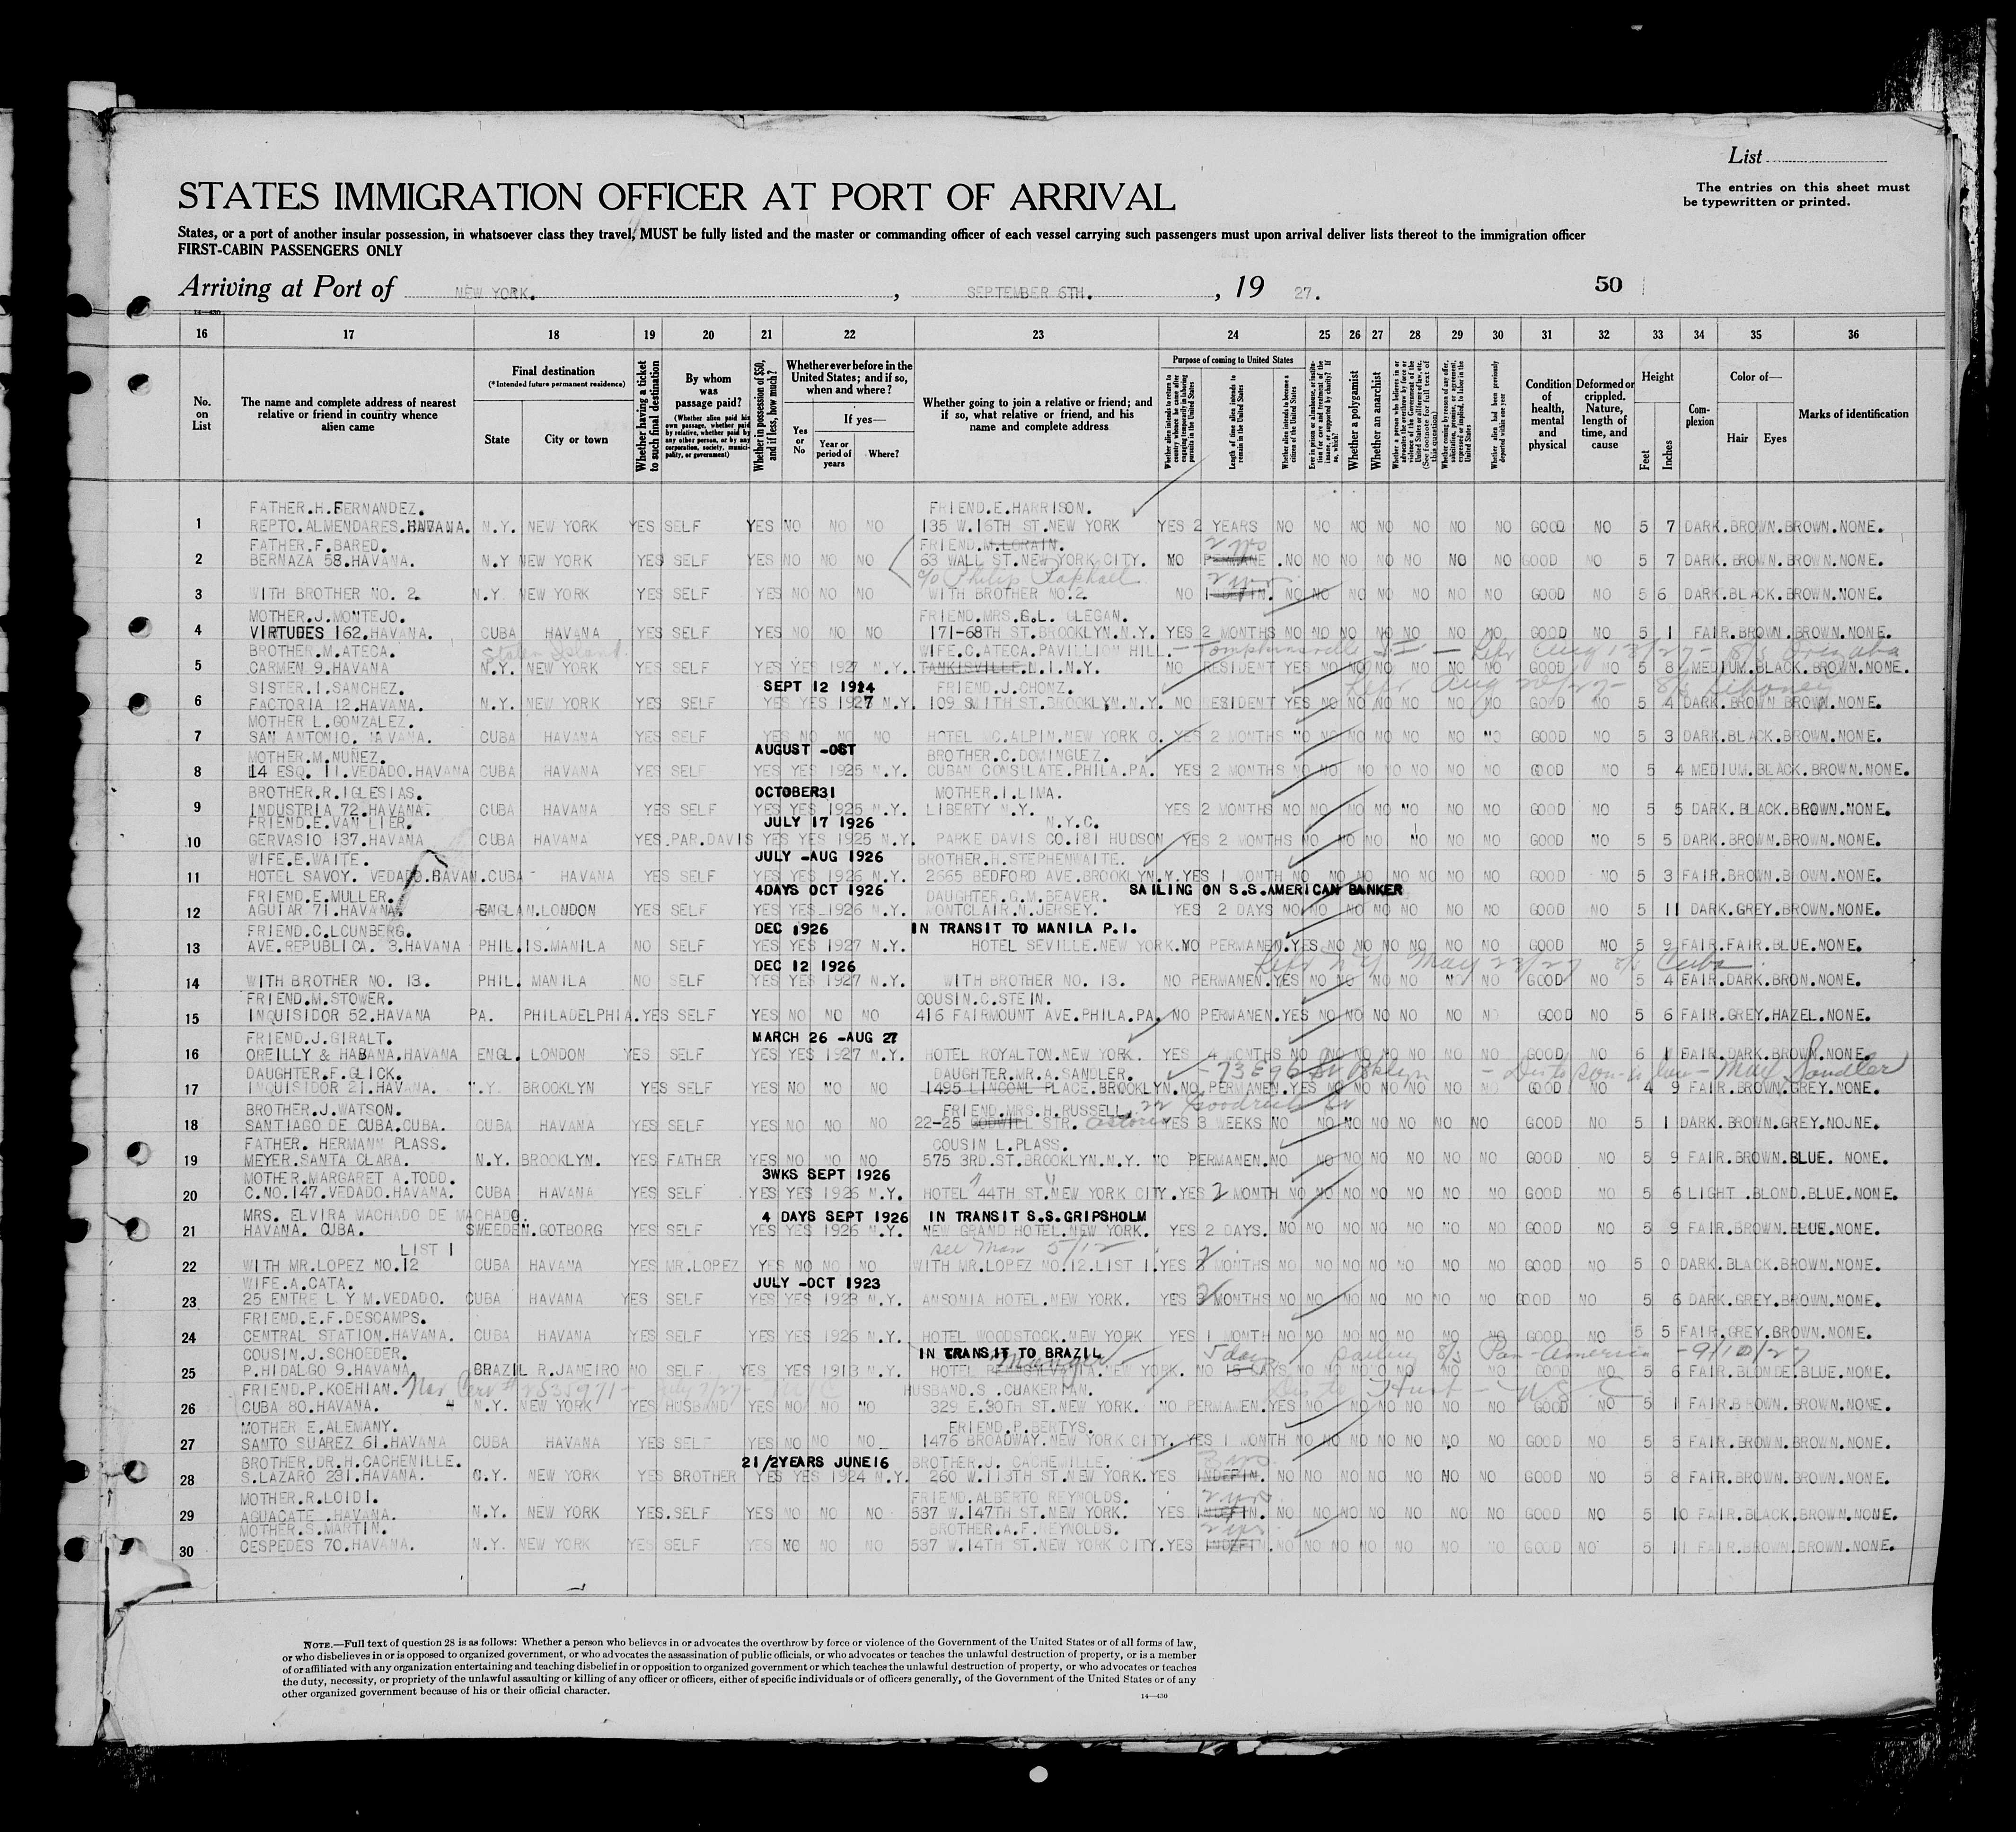 List
The entries on this sheet must
be typewritten or printed.
STATES IMMIGRATION OFFICER AT PORT OF ARRIVAL
States, or a port of another insular possession, in whatsoever class they travel, MUST be fully listed and the master or commanding officer of each vessel carrying such passengers must upon arrival deliver lists thereto to the immigration officer
FIRST-CABIN PASSENGERS ONLY
Arriving at Port of NEW YORK. , SEPTEMBER 6TH. , 19 27. 50
14—430
16 17 18 19 20 21 22 23 24 25 26 27 28 29 30 31 32 33 34 35 36
No. on List
The name and complete address of nearest relative or friend in country whence alien came
Final destination
(*Intended future permanent residence)
State
City or town
Whether having a ticket to such final destination
By whom was passage paid?
(Whether alien paid his own passage, whether paid by relative, whether paid by any other person, or by any corporation, society, municipality, or government)
Whether in possession of $50, and if less, how much?
Whether ever before in the United States; and if so, when and where?
Yes or No
If yes—
Year or period of years
Where?
Whether going to join a relative or friend; and if so, what relative or friend, and his name and complete address
Purpose of coming to United States
Length of time alien intends to remain in the United States
Whether alien intends to become a citizen of the United States
Whether a polygamist
Whether an anarchist
Whether alien had been previously deported within one year
Condition of health, mental and physical
Deformed or crippled. Nature, length of time, and cause
Height
Feet
Inches
Complexion
Color of—
Hair
Eyes
Marks of identification
FATHER.H.FERNANDEZ. FRIEND.E.HARRISON.
1 REPTO.ALMENDARES.HAVANA. N.Y. NEW YORK YES SELF YES NO NO NO 135 W.16TH ST.NEW YORK YES 2 YEARS NO NO NO NO NO NO NO GOOD NO 5 7 DARK.BROWN.BROWN.NONE.
FATHER.F.BARED. FRIEND.M.LORAIN. 2 yrs
2 BERNAZA 58.HAVANA. N.Y NEW YORK YES SELF YES NO NO NO 63 WALL ST.NEW YORK CITY. NO PERMANE.NO NO NO NO NO NO NO GOOD NO 5 7 DARK.BROWN.BROWN.NONE.
c/o Philip Raphael 2 yrs
3 WITH BROTHER NO. 2. N.Y. NEW YORK YES SELF YES NO NO NO WITH BROTHER NO.2. NO INDEFIN. NO NO NO NO NO NO NO GOOD NO 5 6 DARK.BLACK.BROWN.NONE.
MOTHER.J.MONTEJO. FRIEND.MRS.G.L. CLEGAN.
4 VIRTUDES 162.HAVANA. CUBA HAVANA YES SELF YES NO NO NO 171-68TH ST.BROOKLYN.N.Y. YES 2 MONTHS NO NO NO NO NO NO NO GOOD NO 5 1 FAIR.BROWN.BROWN.NONE.
BROTHER.M.ATECA. Staten Island WIFE.C.ATECA.PAVILLION HILL. — Tompkinsville S.I. — Left Aug 13/27 - S/S Orizaba
5 CARMEN 9.HAVANA N.Y. NEW YORK YES SELF YES YES 1927 N.Y. TANKISVILLE.L.I.N.Y. NO RESIDENT YES NO NO NO NO NO NO GOOD NO 5 8 MEDIUM.BLACK.BROWN.NONE.
SISTER.I.SANCHEZ. SEPT 12 1924 FRIEND.J.CHONZ. Left Aug 20/27 - S/S Siboney
6 FACTORIA 12.HAVANA. N.Y. NEW YORK YES SELF YES YES 1927 N.Y. 109 SMITH ST.BROOKLYN.N.Y. NO RESIDENT YES NO NO NO NO NO NO GOOD NO 5 4 DARK.BROWN BROWN.NONE.
MOTHER L.GONZALEZ.
7 SAN ANTONIO. HAVANA. CUBA HAVANA YES SELF YES NO NO NO HOTEL MC.ALPIN.NEW YORK C. YES 2 MONTHS NO NO NO NO NO NO NO GOOD NO 5 3 DARK.BLACK.BROWN.NONE.
MOTHER.M.NUÑEZ. AUGUST -OCT BROTHER.C.DOMINGUEZ.
8 14 ESQ. 11.VEDADO.HAVANA CUBA HAVANA YES SELF YES YES 1925 N.Y. CUBAN CONSLATE.PHILA.PA. YES 2 MONTHS NO NO NO NO NO NO NO GOOD NO 5 4 MEDIUM.BLACK.BROWN.NONE.
BROTHER.R.IGLESIAS. OCTOBER31 MOTHER.I.LIMA.
9 INDUSTRIA 72.HAVANA CUBA HAVANA YES SELF YES YES 1925 N.Y. LIBERTY N.Y. YES 2 MONTHS NO NO NO NO NO NO NO GOOD NO 5 5 DARK.BLACK.BROWN.NONE.
FRIEND.E.VAN LIER. JULY 17 1926 N.Y.C.
10 GERVASIO 137.HAVANA CUBA HAVANA YES.PAR.DAVIS YES YES 1925 N.Y. PARKE DAVIS CO.181 HUDSON YES 2 MONTHS NO NO NO NO NO NO GOOD NO 5 5 DARK.BROWN.BROWN.NONE.
WIFE.E.WAITE. JULY -AUG 1926 BROTHER.H.STEPHENWAITE.
11 HOTEL SAVOY. VEDADO.HAVAN.CUBA- HAVANA YES SELF YES YES 1926 N.Y. 2665 BEDFORD AVE.BROOKLYN.N.Y.YES 1 MONTH NO NO NO NO NO NO NO GOOD NO 5 3 FAIR.BROWN.BROWN.NONE.
FRIEND.E.MULLER. 4DAYS OCT 1926 DAUGHTER.G.M.BEAVER. SAILING ON S.S.AMERICAN BANKER
12 AGUIAR 71.HAVANA. ENGLAN.LONDON YES SELF YES YES 1926 N.Y. MONTCLAIR.N.JERSEY. YES 2 DAYS NO NO NO NO NO NO NO GOOD NO 5 11 DARK.GREY.BROWN.NONE.
FRIEND.C.LOUNBERG. DEC 1926 IN TRANSIT TO MANILA P.I.
13 AVE.REPUBLICA. 3.HAVANA PHIL.IS.MANILA NO SELF YES YES 1927 N.Y. HOTEL SEVILLE.NEW YORK.NO PERMANEN.YES NO NO NO NO NO NO GOOD NO 5 9 FAIR.FAIR.BLUE.NONE.
DEC 12 1926 Left N.Y. May 23/27 S/S Cuba
14 WITH BROTHER NO. 13. PHIL. MANILA NO SELF YES YES 1927 N.Y. WITH BROTHER NO. 13. NO PERMANEN.YES NO NO NO NO NO NO GOOD NO 5 4 FAIR.DARK.BRON.NONE.
FRIEND.M.STOWER. COUSIN.C.STEIN.
15 INQUISIDOR 52.HAVANA PA. PHILADELPHIA.YES SELF YES NO NO NO 416 FAIRMOUNT AVE.PHILA.PA. NO PERMANEN.YES NO NO NO NO NO NO GOOD NO 5 6 FAIR.GREY.HAZEL.NONE.
FRIEND.J.GIRALT. MARCH 26 -AUG 27
16 OREILLY & HABANA.HAVANA ENGL. LONDON YES SELF YES YES 1927 N.Y. HOTEL ROYALTON.NEW YORK. YES 4 MONTHS NO NO NO NO NO NO NO GOOD NO 6 1 FAIR.DARK.BROWN.NONE.
DAUGHTER.F.GLICK. DAUGHTER.MR.A.SANDLER. - 73 E 96 St Bklyn - Dis to son-in law - Max Sandler
17 INQUISIDOR 21.HAVANA. N.Y. BROOKLYN YES SELF YES NO NO NO 1495 LINCONL PLACE.BROOKLYN.NO PERMANEN.YES NO NO NO NO NO NO GOOD NO 4 9 FAIR.BROWN.GREY.NONE.
BROTHER.J.WATSON. FRIEND.MRS.H.RUSSELL. 22 Goodrich St
18 SANTIAGO DE CUBA.CUBA. CUBA HAVANA YES SELF YES NO NO NO 22-25 STR. Astoria YES 3 WEEKS NO NO NO NO NO NO NO GOOD NO 5 1 DARK.BROWN.GREY.NOJNE.
FATHER. HERMANN PLASS. COUSIN L.PLASS.
19 MEYER.SANTA CLARA. N.Y. BROOKLYN. YES FATHER YES NO NO NO 575 3RD.ST.BROOKLYN.N.Y. NO PERMANEN.NO NO NO NO NO NO NO GOOD NO 5 9 FAIR.BROWN.BLUE. NONE.
MOTHER.MARGARET A.TODD. 3WKS SEPT 1926
20 C.NO.147.VEDADO.HAVANA. CUBA HAVANA YES SELF YES YES 1926 N.Y. HOTEL 44TH ST.NEW YORK CITY.YES 2 MONTH NO NO NO NO NO NO NO GOOD NO 5 6 LIGHT .BLOND.BLUE.NONE.
MRS. ELVIRA MACHADO DE MACHADO. 4 DAYS SEPT 1926 IN TRANSIT S.S.GRIPSHOLM
21 HAVANA. CUBA. SWEEDEN.GOTBORG YES SELF YES YES 1926 N.Y. NEW GRAND HOTEL.NEW YORK. YES 2 DAYS. NO NO NO NO NO NO NO GOOD NO 5 9 FAIR.BROWN.BLUE.NONE.
LIST 1 see Man 5/12
22 WITH MR.LOPEZ NO.12 CUBA HAVANA YES MR.LOPEZ YES NO NO NO WITH MR.LOPEZ NO.12.LIST 1.YES 2 MONTHS NO NO NO NO NO NO NO GOOD NO 5 0 DARK.BLACK.BROWN.NONE.
WIFE.A.CATA. JULY -OCT 1923
23 25 ENTRE L Y M.VEDADO. CUBA HAVANA YES SELF YES YES 1923 N.Y. ANSONIA HOTEL.NEW YORK. YES 2 MONTHS NO NO NO NO NO NO NO GOOD NO 5 6 DARK.GREY.BROWN.NONE.
FRIEND.E.F.DESCAMPS.
24 CENTRAL STATION.HAVANA. CUBA HAVANA YES SELF YES YES 1926 N.Y. HOTEL WOODSTOCK.NEW YORK YES 1 MONTH NO NO NO NO NO NO NO GOOD NO 5 5 FAIR.GREY.BROWN.NONE.
COUSIN.J.SCHOEDER. IN TRANSIT TO BRAZIL Manger 5 day sailing S/S Pan-America - 9/10/27
25 P.HIDALGO 9.HAVANA BRAZIL R.JANEIRO NO SELF YES YES 1913 N.Y. HOTEL NEW YORK. NO 15 DAYS NO NO NO NO NO NO NO GOOD NO 5 6 FAIR.BLONDE.BLUE.NONE.
FRIEND.P.KOEHIAN. HUSBAND.S.CUAKERMAN. Dis to Husb
26 CUBA 80.HAVANA. N.Y. NEW YORK YES HUSBAND YES NO NO NO 329 E.30TH ST.NEW YORK. NO PERMANEN.YES NO NO NO NO NO NO GOOD NO 5 1 FAIR.BROWN.BROWN.NONE.
MOTHER E.ALEMANY. FRIEND.P.BERTYS.
27 SANTO SUAREZ 61.HAVANA CUBA HAVANA YES SELF YES NO NO NO 1476 BROADWAY.NEW YORK CITY. YES 1 MONTH NO NO NO NO NO NO NO GOOD NO 5 5 FAIR.BROWN.BROWN.NONE.
BROTHER.DR.H.CACHENILLE. 21/2YEARS JUNE16 BROTHER.J. CACHEMILLE. 3 yrs
28 S.LAZARO 231.HAVANA. N.Y. NEW YORK YES BROTHER YES YES 1924 N.Y. 260 W.113TH ST.NEW YORK.YES INDEFIN. NO NO NO NO NO NO NO GOOD NO 5 8 FAIR.BROWN.BROWN.NONE.
MOTHER.R.LOIDI. FRIEND.ALBERTO REYNOLDS. 2 yrs
29 AGUACATE .HAVANA. N.Y. NEW YORK YES.SELF YES NO NO NO 537 W.147TH ST.NEW YORK. YES INDEFIN. NO NO NO NO NO NO NO GOOD NO 5 10 FAIR.BLACK.BROWN.NONE.
MOTHER.S.MARTIN. BROTHER.A.F.REYNOLDS. 2 yrs
30 CESPEDES 70.HAVANA. N.Y. NEW YORK YES SELF YES NO NO NO 537 W.14TH ST.NEW YORK CITY.YES INDEFIN.NO NO NO NO NO NO NO GOOD NO 5 11 FAIR.BROWN.BROWN.NONE.
NOTE.—Full text of question 28 is as follows: Whether a person who believes in or advocates the overthrow by force or violence of the Government of the United States or of all forms of law,
or who disbelieves in or is opposed to organized government, or who advocates the assassination of public officials, or who advocates or teaches the unlawful destruction of property, or is a member
of or affiliated with any organization entertaining and teaching disbelief in or opposition to organized government or which teaches the unlawful destruction of property, or who advocates or teaches
the duty, necessity, or propriety of the unlawful assaulting or killing of any officer or officers, either of specific individuals or of officers generally, of the Government of the United States or of any
other organized government because of his or their official character.
14—430